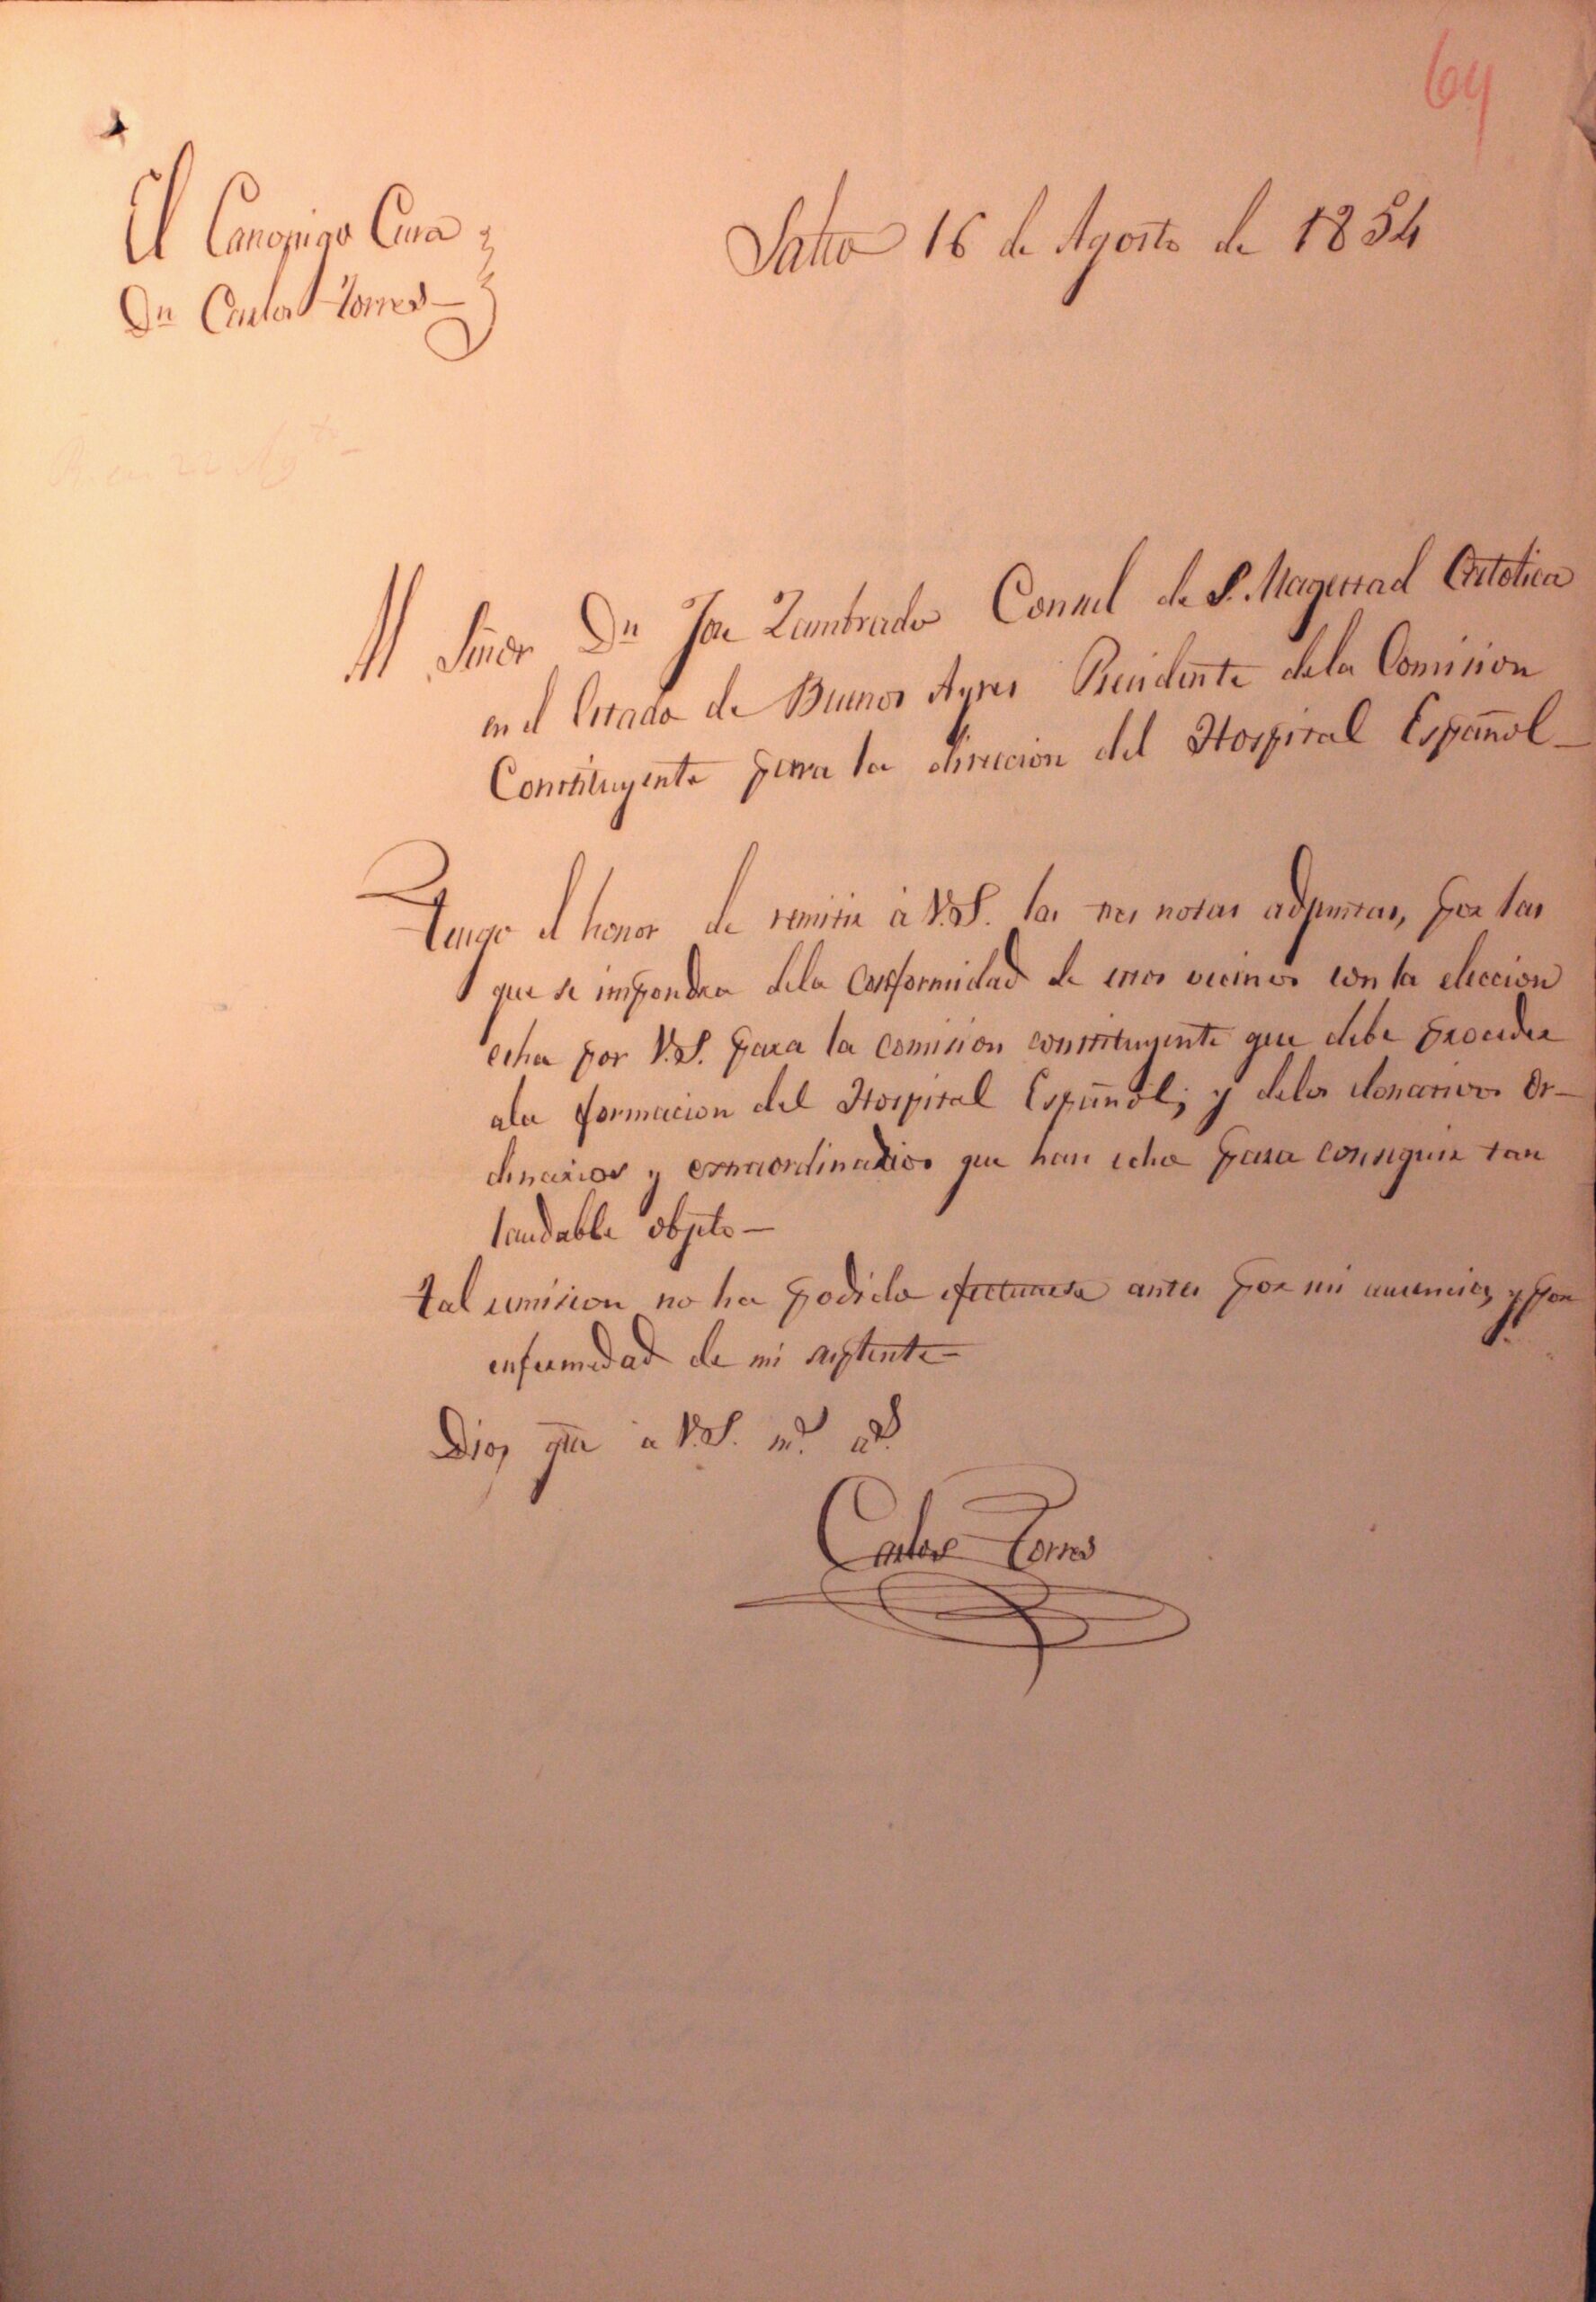 64
El Canonigo Cura
Dn Carlos Torres—
Salto 16 de Agosto de 1854
22 Agto —
Al Señor Dn Jose Zambrado Consul de S. Magestad Catolica
en el Estado de Buenos Ayres Presidente dela Comision
Constituyente para la direccion del Hospital Español—
Tengo el honor de remitir à V.S. las tres notas adjuntas, por las
que se impondra dela conformidad de esos vecinos con la eleccion
echa por V.S. para la comision constituyente que debe proceder
ala formacion del Hospital Español; y delos donativos Or-
dinarios y extraordinarios que han echo para conseguir tan
laudable objeto—
tal remision no ha podido efectuarse antes por mi ausencia, y por
enfermedad de mi
Dios gue a V.S. ms. as.
Carlos Torres